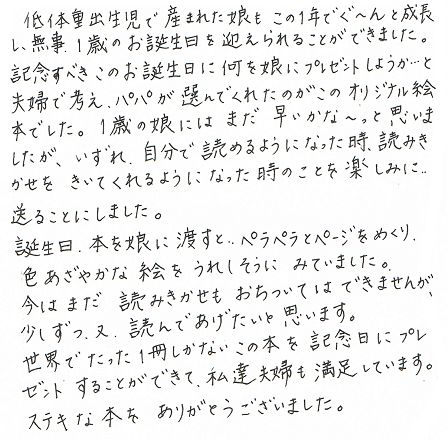 低体重出生児で産まれた娘も この1年でぐ〜んと成長
し、無事、1歳のお誕生日を迎えられることができました。
記念すべきこのお誕生日に何を娘にプレゼントしようか…と
夫婦で考え、パパが選んでくれたのがこのオリジナル絵
本でした。1歳の娘にはまだ早いかな〜っと思いま
したが、いずれ、自分で読めるようになった時、読みき
かせをきいてくれるようになった時のことを楽しみに…
送ることにしました。
誕生日、本を娘に渡すと…ペラペラとページをめくり、
色あざやかな絵をうれしそうにみていました。
今はまだ 読みきかせもおちついてはできませんが、
少しずつ、又、読んであげたいと思います。
世界でたった1冊しかないこの本を記念日にプレ
ゼントすることができて、私達夫婦も満足しています。
ステキな本をありがとうございました。